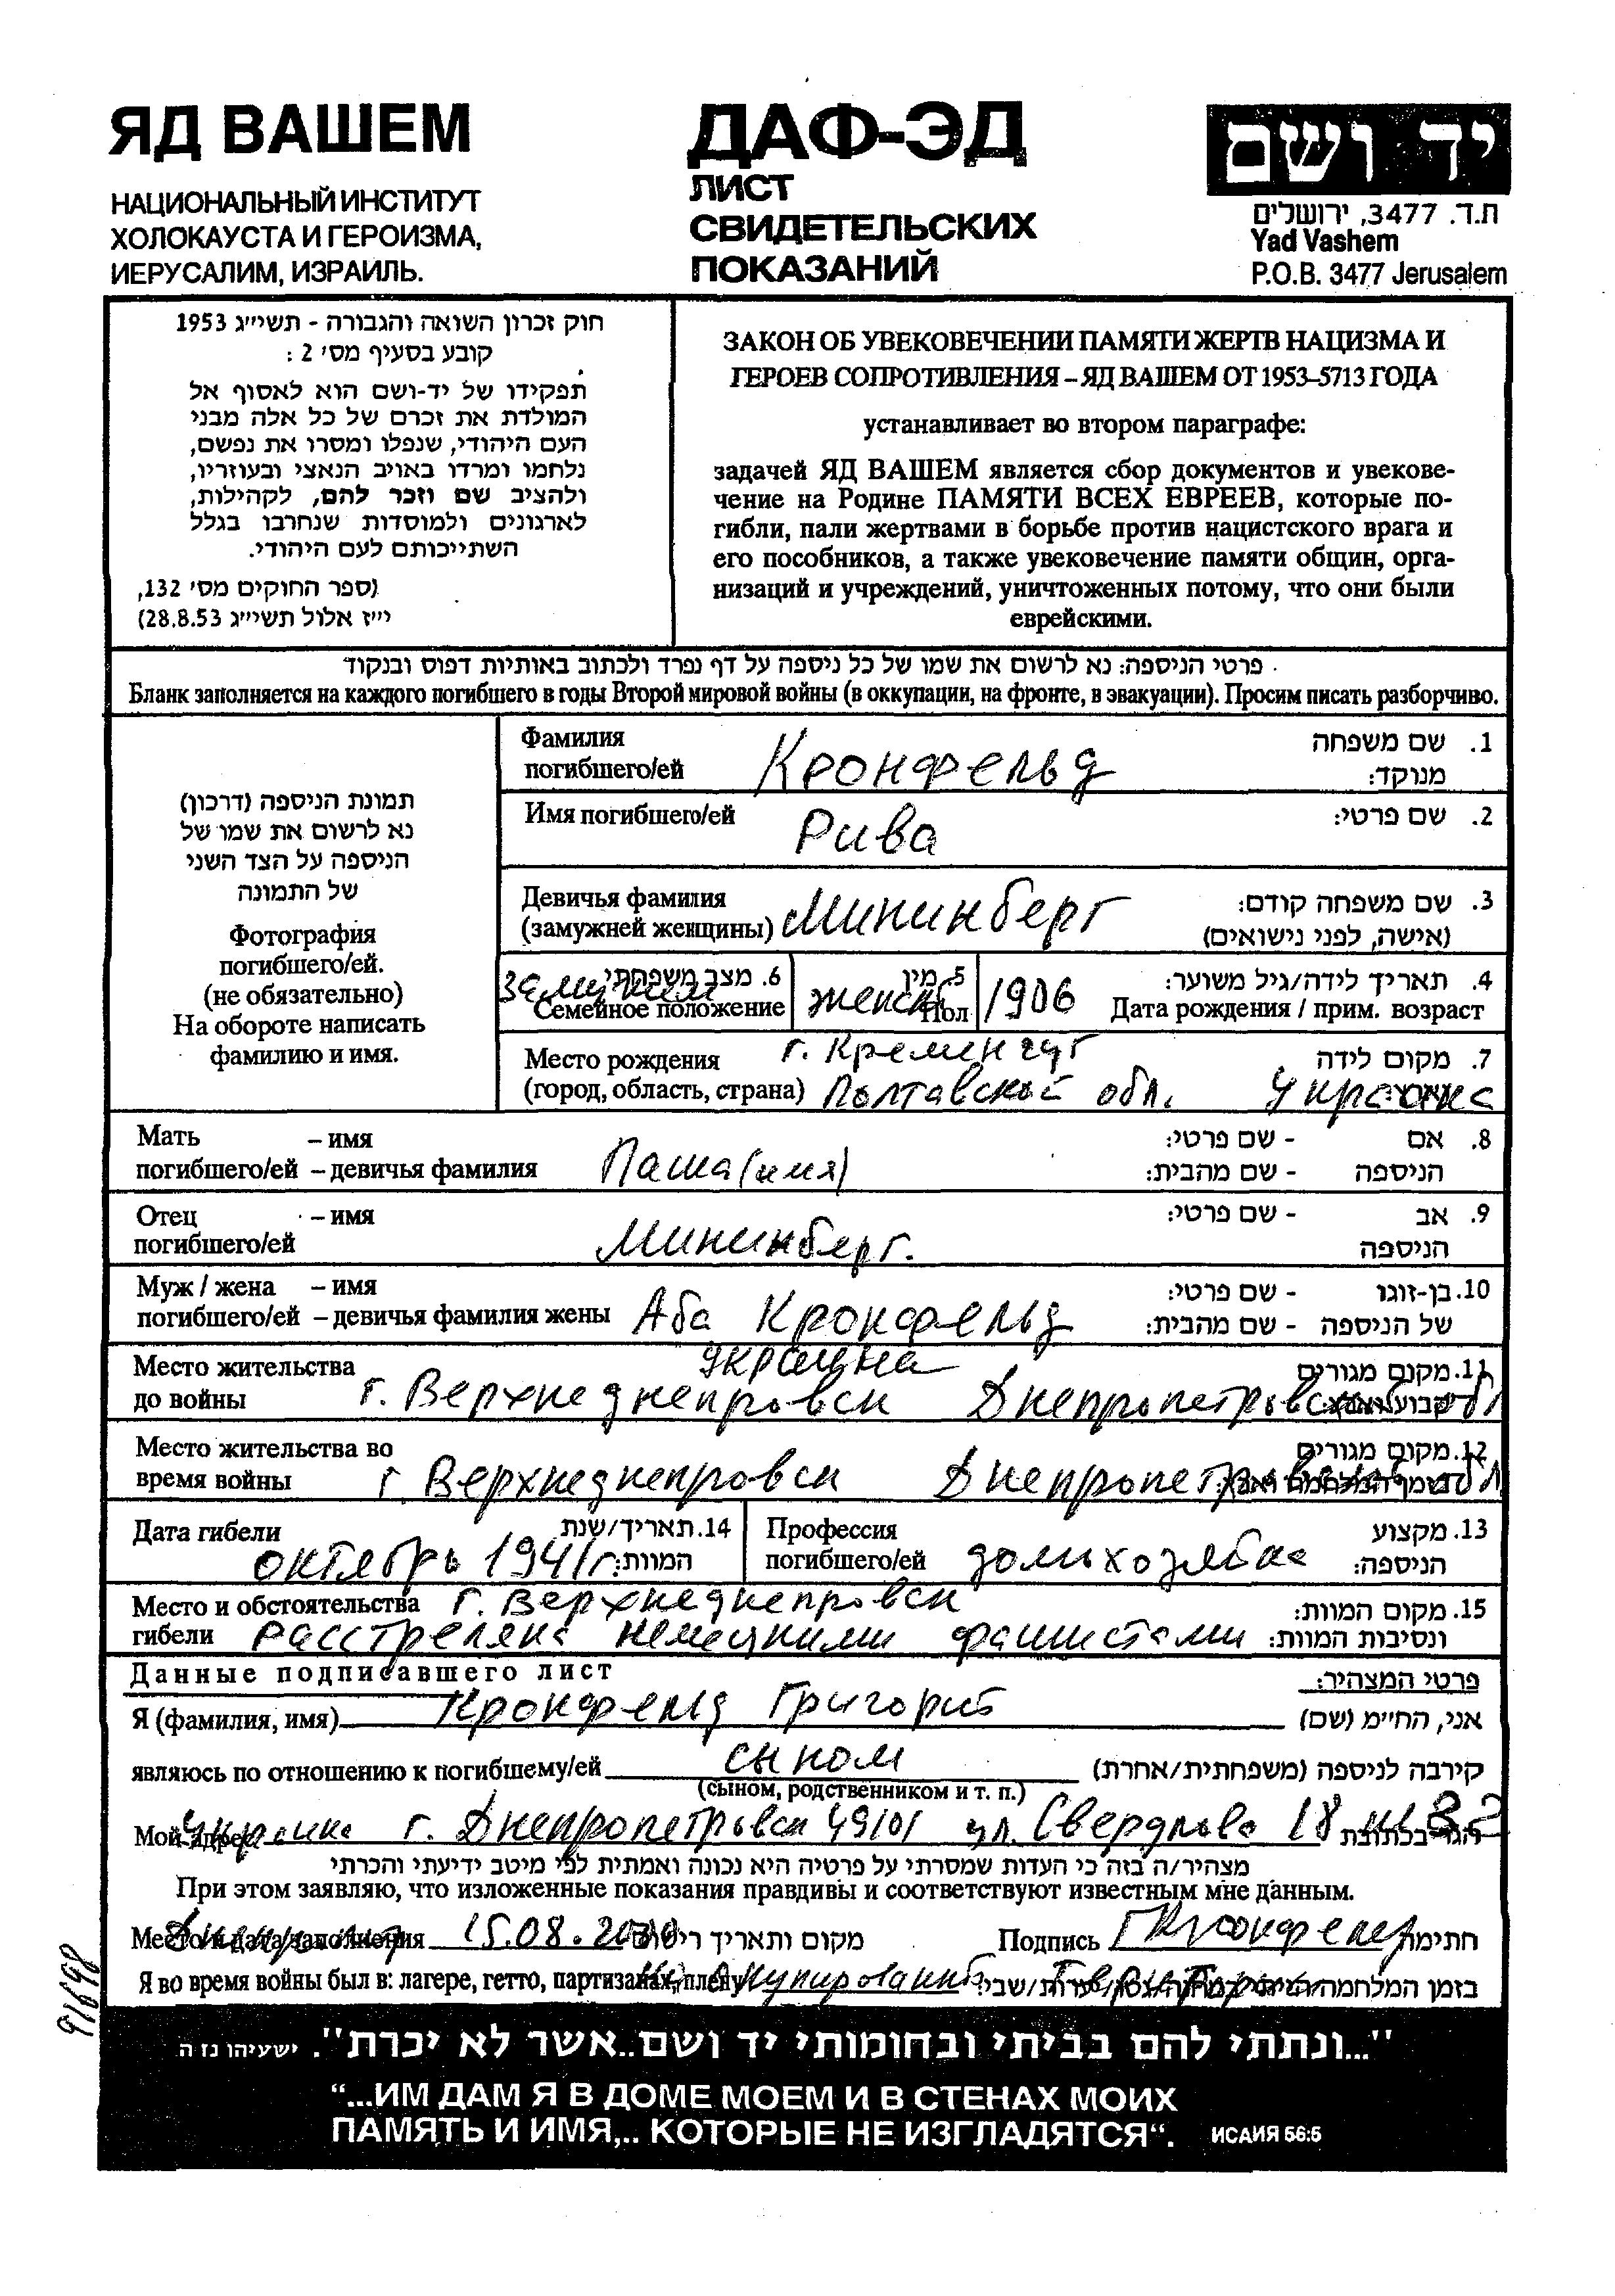 ЯД ВАШЕМ
НАЦИОНАЛЬНЫЙ ИНСТИТУТ
ХОЛОКАУСТА И ГЕРОИЗМА,
ИЕРУСАЛИМ, ИЗРАИЛЬ.
ДАФ-ЭД
ЛИСТ
СВИДЕТЕЛЬСКИХ
ПОКАЗАНИЙ
יד ושם
ת.ד. 3477, ירושלים
Yad Vashem
P.O.B. 3477 Jerusalem
חוק זכרון השואה והגבורה - תשי״ג 1953
קובע בסעיף מס׳ 2 :
תפקידו של יד-ושם הוא לאסוף אל
המולדת את זכרם של כל אלה מבני
העם היהודי, שנפלו ומסרו את נפשם,
נלחמו ומרדו באויב הנאצי ובעוזריו,
ולהציב שם וזכר להם, לקהילות,
לארגונים ולמוסדות שנחרבו בגלל
השתייכותם לעם היהודי.
(ספר החוקים מס׳ 132,
י״ז אלול תשי״ג 28.8.53)
ЗАКОН ОБ УВЕКОВЕЧЕНИИ ПАМЯТИ ЖЕРТВ НАЦИЗМА И
ГЕРОЕВ СОПРОТИВЛЕНИЯ – ЯД ВАШЕМ ОТ 1953–5713 ГОДА
устанавливает во втором параграфе:
задачей ЯД ВАШЕМ является сбор документов и увекове-
чение на Родине ПАМЯТИ ВСЕХ ЕВРЕЕВ, которые по-
гибли, пали жертвами в борьбе против нацистского врага и
его пособников, а также увековечение памяти общин, орга-
низаций и учреждений, уничтоженных потому, что они были
еврейскими.
פרטי הניספה: נא לרשום את שמו של כל ניספה על דף נפרד ולכתוב באותיות דפוס ובנקוד
Бланк заполняется на каждого погибшего в годы Второй мировой войны (в оккупации, на фронте, в эвакуации). Просим писать разборчиво.
תמונת הניספה (דרכון)
נא לרשום את שמו של
הניספה על הצד השני
של התמונה
Фотография
погибшего/ей.
(не обязательно)
На обороте написать
фамилию и имя.
Фамилия
погибшего/ей Кронфельд
1. שם משפחה
מנוקד:
Имя погибшего/ей Рива
2. שם פרטי:
Девичья фамилия
(замужней женщины) Мининберг
3. שם משפחה קודם:
(אישה, לפני נישואים)
6. מצב משפחתי
замужем
Семейное положение
5. מין
женск
Пол
4. תאריך לידה/גיל משוער:
1906 Дата рождения / прим. возраст
Место рождения г. Кременчуг
(город, область, страна) Полтавской обл. Украина
7. מקום לידה
Мать – имя
погибшего/ей – девичья фамилия Паша (имя)
8. אם - שם פרטי:
הניספה - שם מהבית:
Отец – имя
погибшего/ей Мининберг.
9. אב - שם פרטי:
הניספה
Муж / жена – имя
погибшего/ей – девичья фамилия жены Аба Кронфельд
10. בן-זוגו - שם פרטי:
של הניספה - שם מהבית:
Место жительства Украина
до войны г. Верхнеднепровск Днепропетровской обл
11. מקום מגורים
Место жительства во
время войны г. Верхнеднепровск Днепропетровской обл
12. מקום מגורים
Дата гибели
октябрь 1941 г.
14. תאריך/שנת
המוות:
Профессия
погибшего/ей домохозяйка
13. מקצוע
הניספה:
Место и обстоятельства г. Верхнеднепровск
гибели расстреляна немецкими фашистами
15. מקום המוות:
ונסיבות המוות:
Данные подписавшего лист
פרטי המצהיר:
Я (фамилия, имя) Кронфельд Григорий
אני, החי״מ (שם)
являюсь по отношению к погибшему/ей сыном
קירבה לניספה (משפחתית/אחרת)
(сыном, родственником и т. п.)
Мой адрес Украина г. Днепропетровск 49101 ул. Свердлова 18 кв 32
מצהיר/ה בזה כי העדות שמסרתי על פרטיה היא נכונה ואמתית לפי מיטב ידיעתי והכרתי
При этом заявляю, что изложенные показания правдивы и соответствуют известным мне данным.
Место и дата заполнения 15.08.
מקום ותאריך
Подпись ГКронфельд חתימה
Я во время войны был в: лагере, гетто, партизанах, плену
בזמן המלחמה
916198
"...ונתתי להם בביתי ובחומותי יד ושם..אשר לא יכרת". ישעיהו נז ה
“...ИМ ДАМ Я В ДОМЕ МОЕМ И В СТЕНАХ МОИХ
ПАМЯТЬ И ИМЯ,.. КОТОРЫЕ НЕ ИЗГЛАДЯТСЯ“. ИСАИЯ 56:5